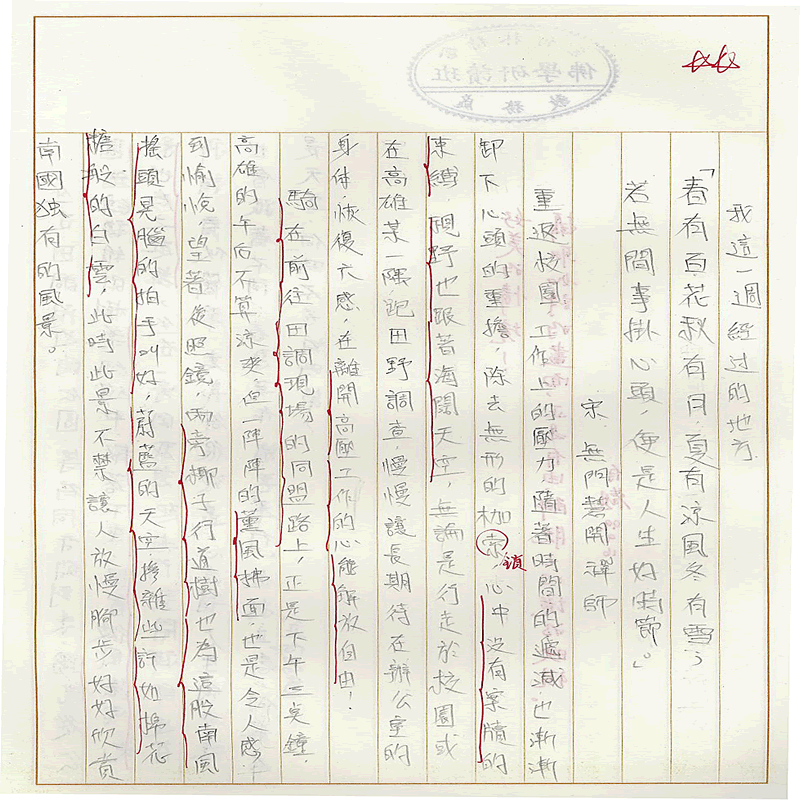 我這一週經过的地方
「春有百花秋有月，夏有涼風冬有雪，
若無閒事掛心頭，便是人生好時節。」
宋．無門慧開禪師
重返校園，工作上的壓力隨著時間的遞減也漸漸
卸下心頭的重擔，除去無形的枷索，心中沒有案牘的
鎖
束縛，視野也跟著海闊天空，無論是行走於校園或
在高雄某一隅跑田野調查，慢慢讓長期待在辦公室的
身体，恢復六感，在離開高壓工作的心能解放自由！
騎在前往田調現場的同盟路上，正是下午二点鐘，
高雄的午后不算涼爽，但一陣陣的薰風拂面，也是令人感
到愉悅，望著後照鏡，兩旁椰子行道樹，也為這股南風
搖頭晃腦的拍手叫好，蔚藍的天空摻雜些許如棉花
糖般的白雲，此時此景不禁讓人放慢腳步，好好欣賞
南國独有的風景。
佛學研讀班
教務處